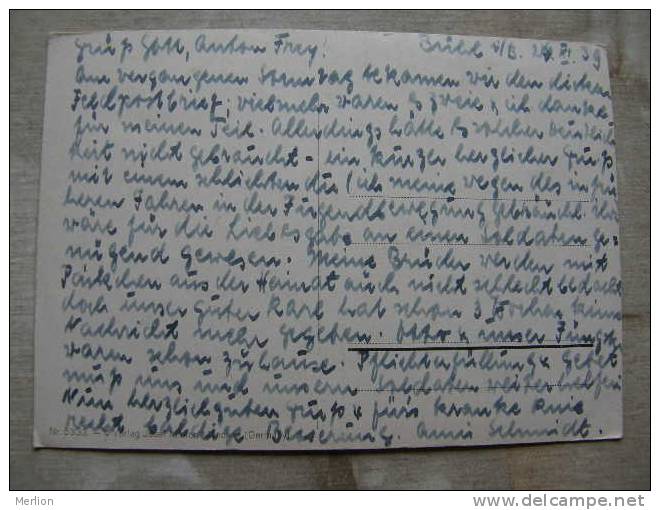 Grüß Gott, Anton Frey! Brühl 24. XI. 39
Am vergangenen Sonntag bekamen wir den dicken
Feldpostbrief, vielmehr waren es zwei u. ich danke
für meinen Teil. Allerdings hätte es solcher
keit nicht gebraucht - ein kurzer herzlicher Gruß
mit einem schlichten du (ich meine wegen des in frü
heren Jahren in der Jugendbewegung
wäre für die Liebesgabe an einen Soldaten ge=
nügend gewesen. Meine Brüder werden mit
Päckchen aus der Heimat auch nicht schlecht bedacht
doch unser guter Karl hat schon 3 Wochen keine
Nachricht mehr gegeben. Otto u. unser Jüngster
waren schon zuhause. Pflichterfüllung u. Gebet
muß uns und unsern Soldaten weiterhelfen
Nun herzlich guten Gruß u. fürs kranke Knie
recht baldige Besserung. Anni Schmidt.
Nr. 5353 Verlag (Germany)
Merlion
http://www.delcampe.net